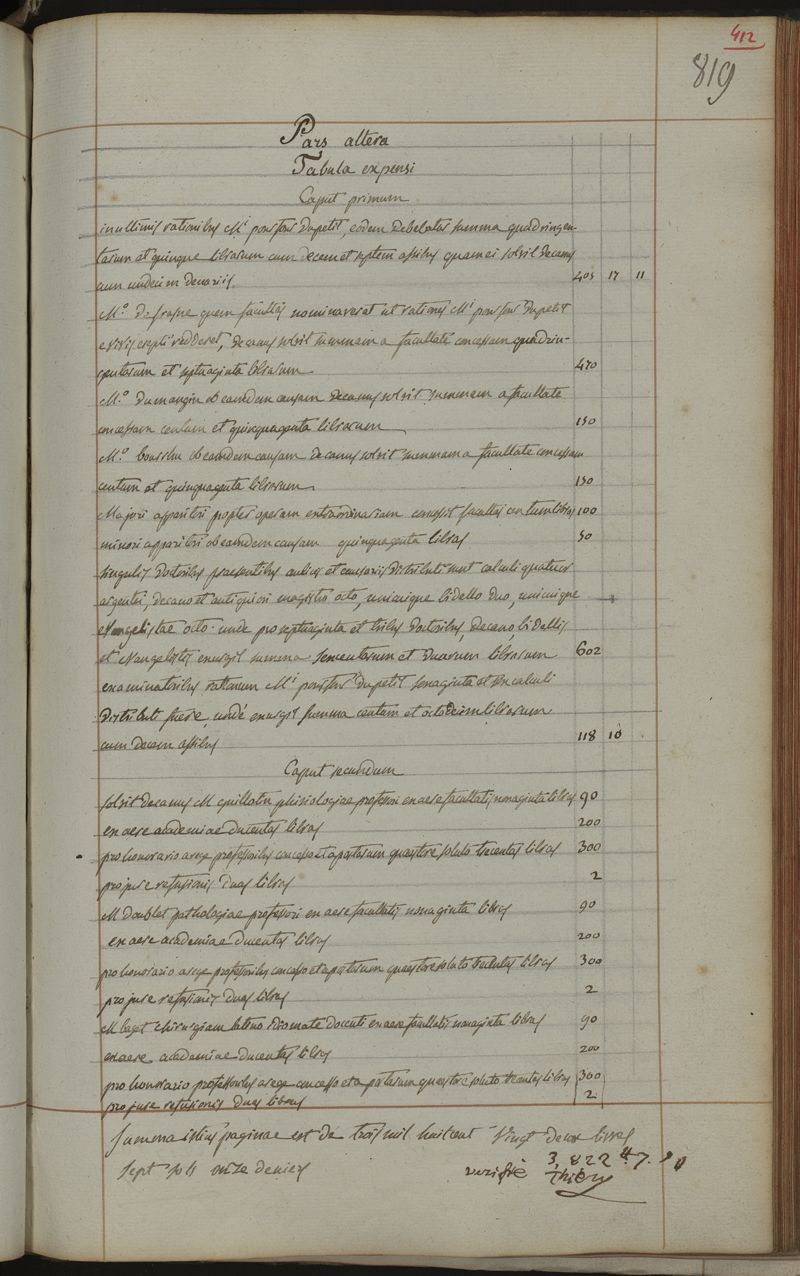 412
819
Pars altera
Tabula expensi
Caput primum
in ultimis rationibus Mi ponsfons Dupetit, eidem debebatur summa quadringen-
tarum et quinque librarum cum decem et septem assibus quam ei solvit decanus
cum undecim denariis. 405 17 11
M.o quem facultas nominaverat ut rationes Mi Dupetit
redderet, decanus solvit summam a facultate concessam quadrin-
gentarum et septuaginta librarum 470
M.o Dumangin ob eamdem causam decanus solvit summam a facultate
concessam centum et quinquaginta librarum 150
M.o ob eamdem causam decanus solvit summam a facultate concessam
centum et quinquaginta librarum 150
Majori apparitori propter operam extraordinariam concessit facultas centum libras 100
minori apparitori ob eamdem causam quinquaginta libras 50
singulis doctoribus praesentibus et distributi sunt calculi quatuor
argentei, decano et antiquiori magistro octo, unicuique bidello duo, unicuique
Evangelistae octo. unde pro septuaginta et tribus doctoribus, decano, bidellis
et Evangelistis exurgit summa sexcentarum et duarum librarum 602
examinatoribus rationum Mi Dupetit sexaginta et sex calculi
distributi fuere, undè exurgit summa centum et octodecim librarum
cum decem assibus 118 10
Caput secundum
solvit decanus M guillotin phisiologiae professori ex aere facultatis nonaginta libras 90
ex aere academiae ducentas libras 200
pro honorario a rege professoribus concesso et a partarum quaestore soluto trecentas libras 300
pro jure refusionis duas libras 2
M doublet pathologiae professori ex aere facultatis nonaginta libras 90
ex aere academiae ducentas libras 200
pro honorario a rege professoribus concesso et a partarum quaestore soluto trecentas libras 300
pro jure refusionis duas libras 2
M baget chirurgiam latino idiomate docenti ex aere facultatis nonaginta libras 90
ex aere academiae ducentas libras 200
pro honorario professoribus a rege concesso et a partarum quaestore soluto trecentas libras 300
pro jure refusionis duas libras 2
Summa istius paginae est de trois mil huit cent Vingt deux livres
sept sols onze deniers 3,822 # 7. 11
verifié Thiéry